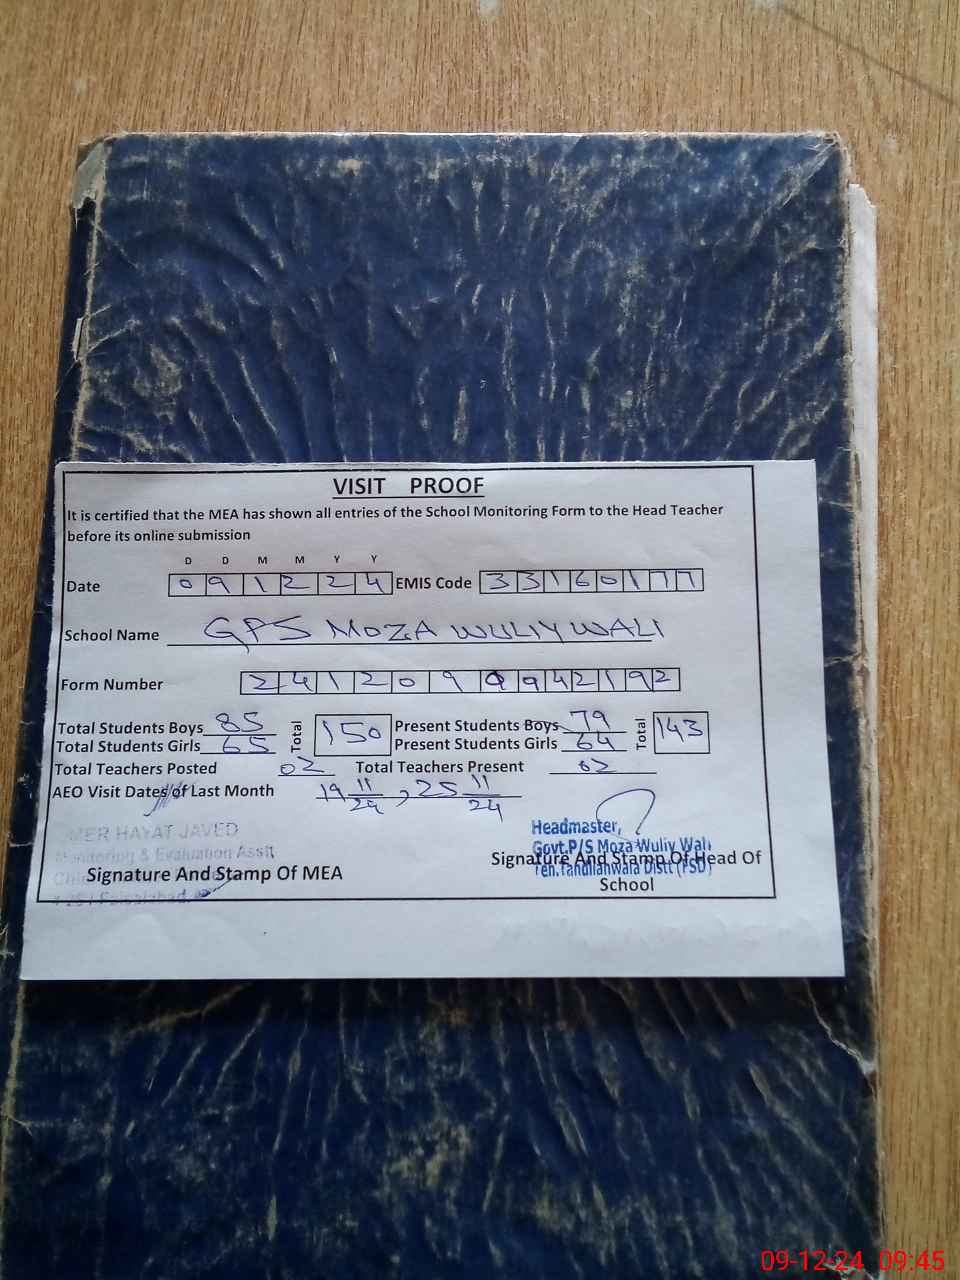 VISIT PROOF
It is certified that the MEA has shown all entries of the School Monitoring Form to the Head Teacher
before its online submission
D D M M Y Y
Date 0 9 1 2 2 4 EMIS Code 3 3 1 6 0 1 7 7
School Name GPS MOZA WULIY WALI
Form Number 2 4 1 2 0 9 0 9 4 2 1 9 2
Total Students Boys 85 Total 150 Present Students Boys 79 Total 143
Total Students Girls 65 Present Students Girls 64
Total Teachers Posted 02 Total Teachers Present 02
AEO Visit Dates of Last Month 19 11/24, 25 11/24
MER HAYAT JAVED
Monitoring & Evaluation Assit
Faisalabad
Signature And Stamp Of MEA
Headmaster,
Govt.P/S Moza Wuliy Wali
Teh.Tandlianwala Distt (FSD)
Signature And Stamp Of Head Of
School
09-12-24 09:45